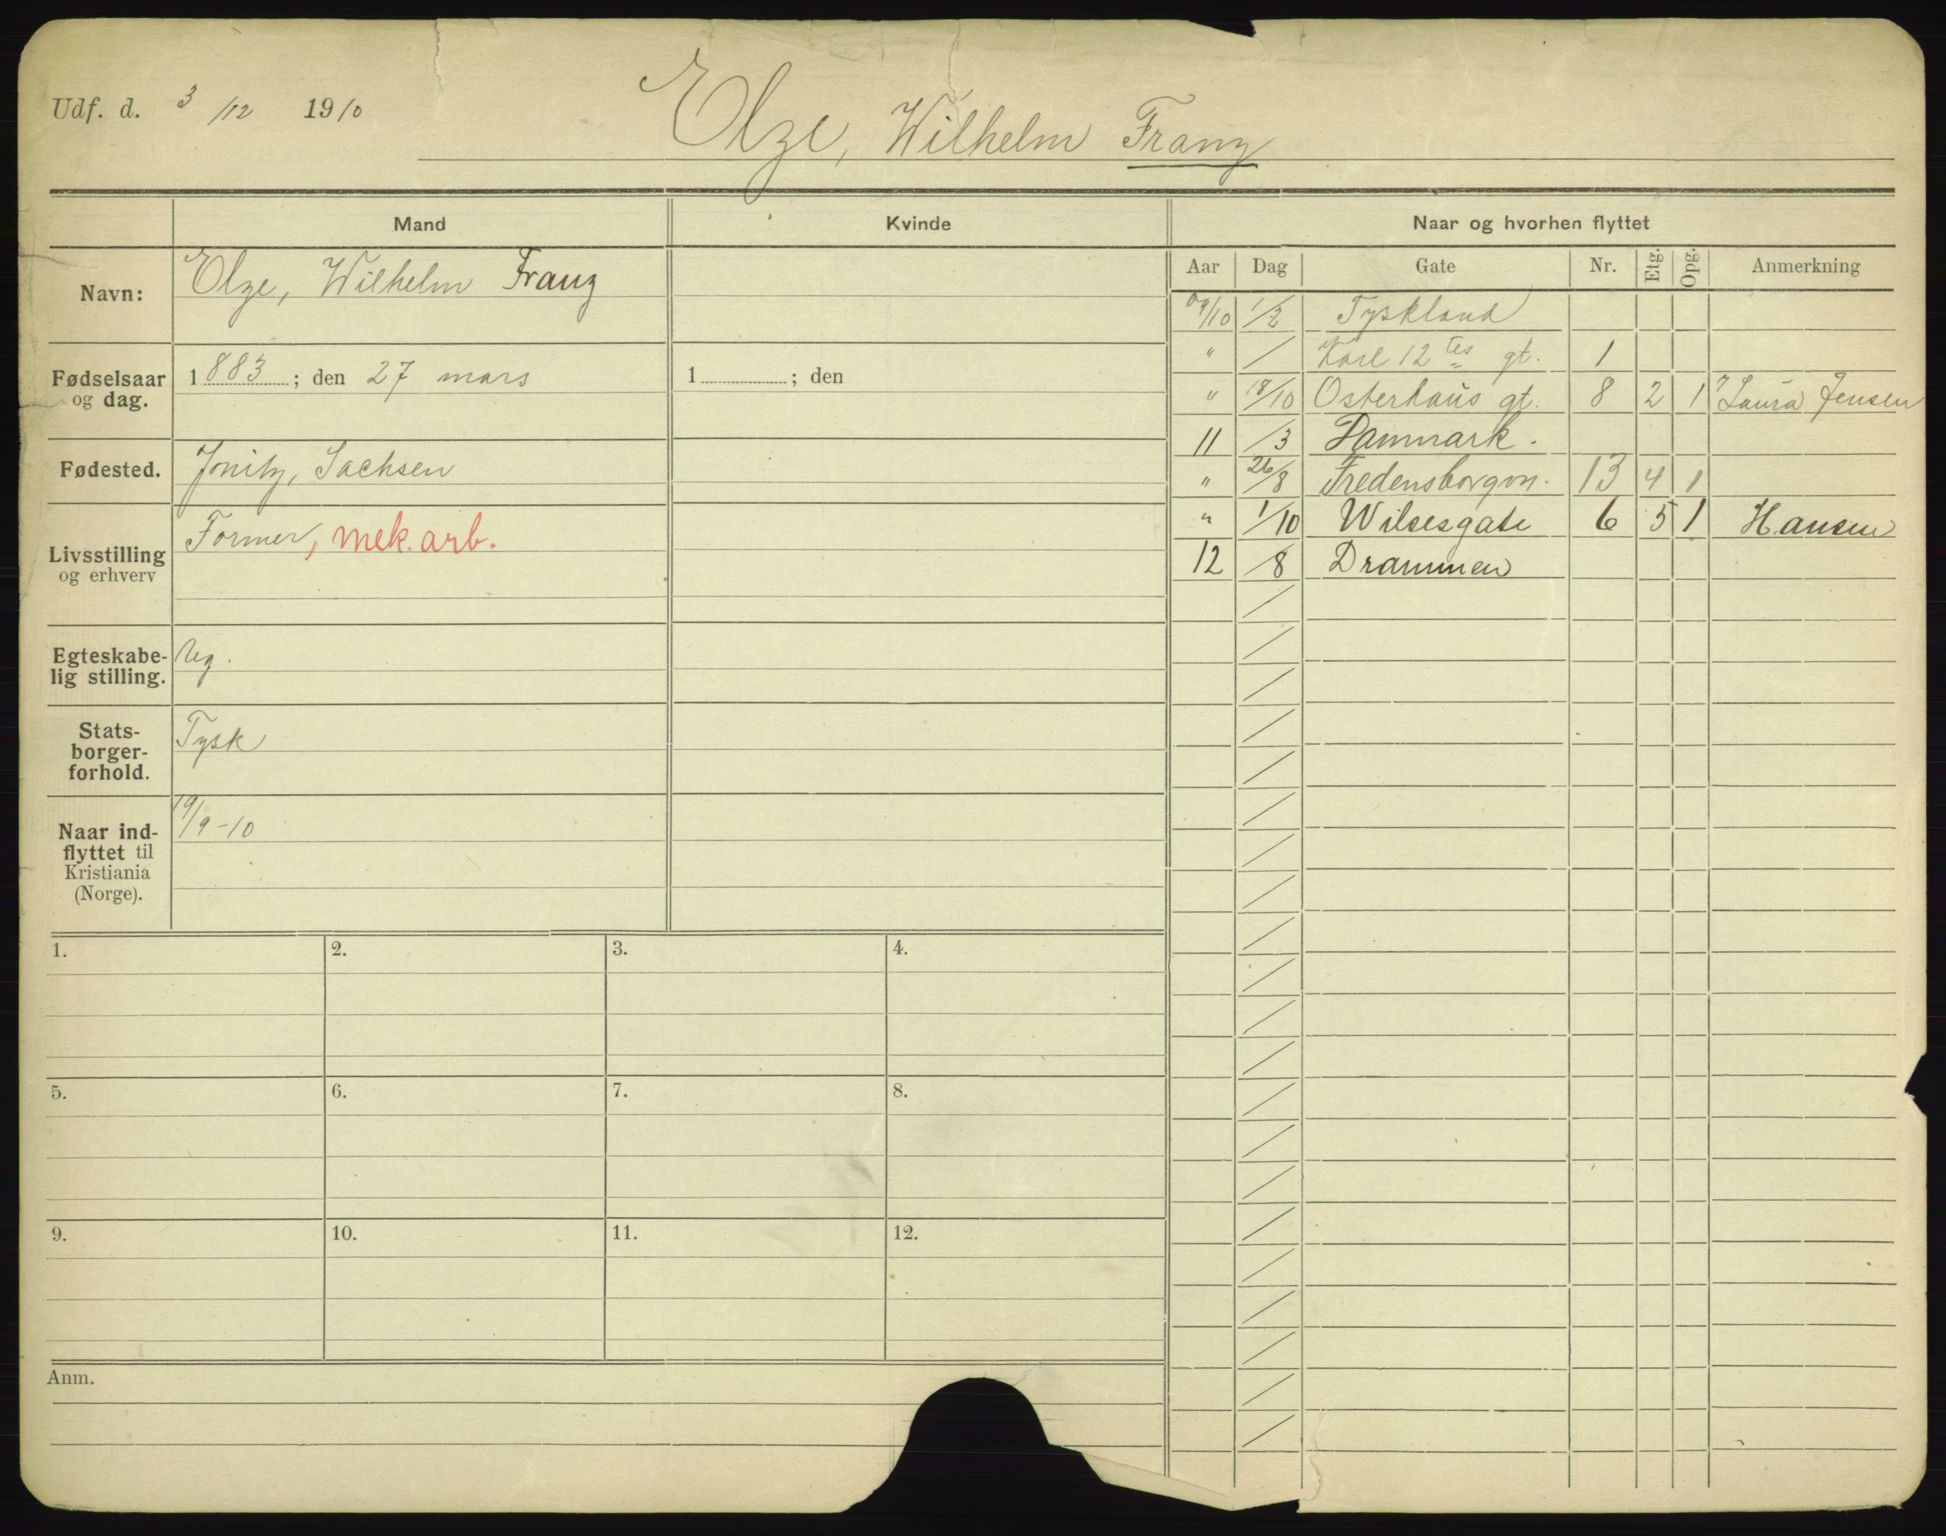 Udf. d. 3/12 1910
Elze, Wilhelm Franz
Mand
Kvinde
Naar og hvorhen flyttet
Navn:
Elze, Wilhelm Franz
Fødselsaar
og dag.
1883; den 27 mars
1 ; den
Fødested.
Jonitz, Sachsen
Livsstilling
og erhverv
Former, mek. arb.
Egteskabe-
lig stilling.
Ug.
Stats-
borger-
forhold.
Tysk
Naar ind-
flyttet til
Kristiania
(Norge).
19/9-10
Aar Dag Gate Nr. Etg. Opg. Anmerkning
09/10 1/2 Tyskland
" / Karl 12 tes gt. 1
" 18/10 Osterhaus gt. 8 2 1 Laura Jensen
11 /3 Danmark.
" 26/8 Fredensborgvn. 13 4 1
" 1/10 Wilsesgate 6 5 1 Hansen
12 /8 Drammen
1. 2. 3. 4.
5. 6. 7. 8.
9. 10. 11. 12.
Anm.